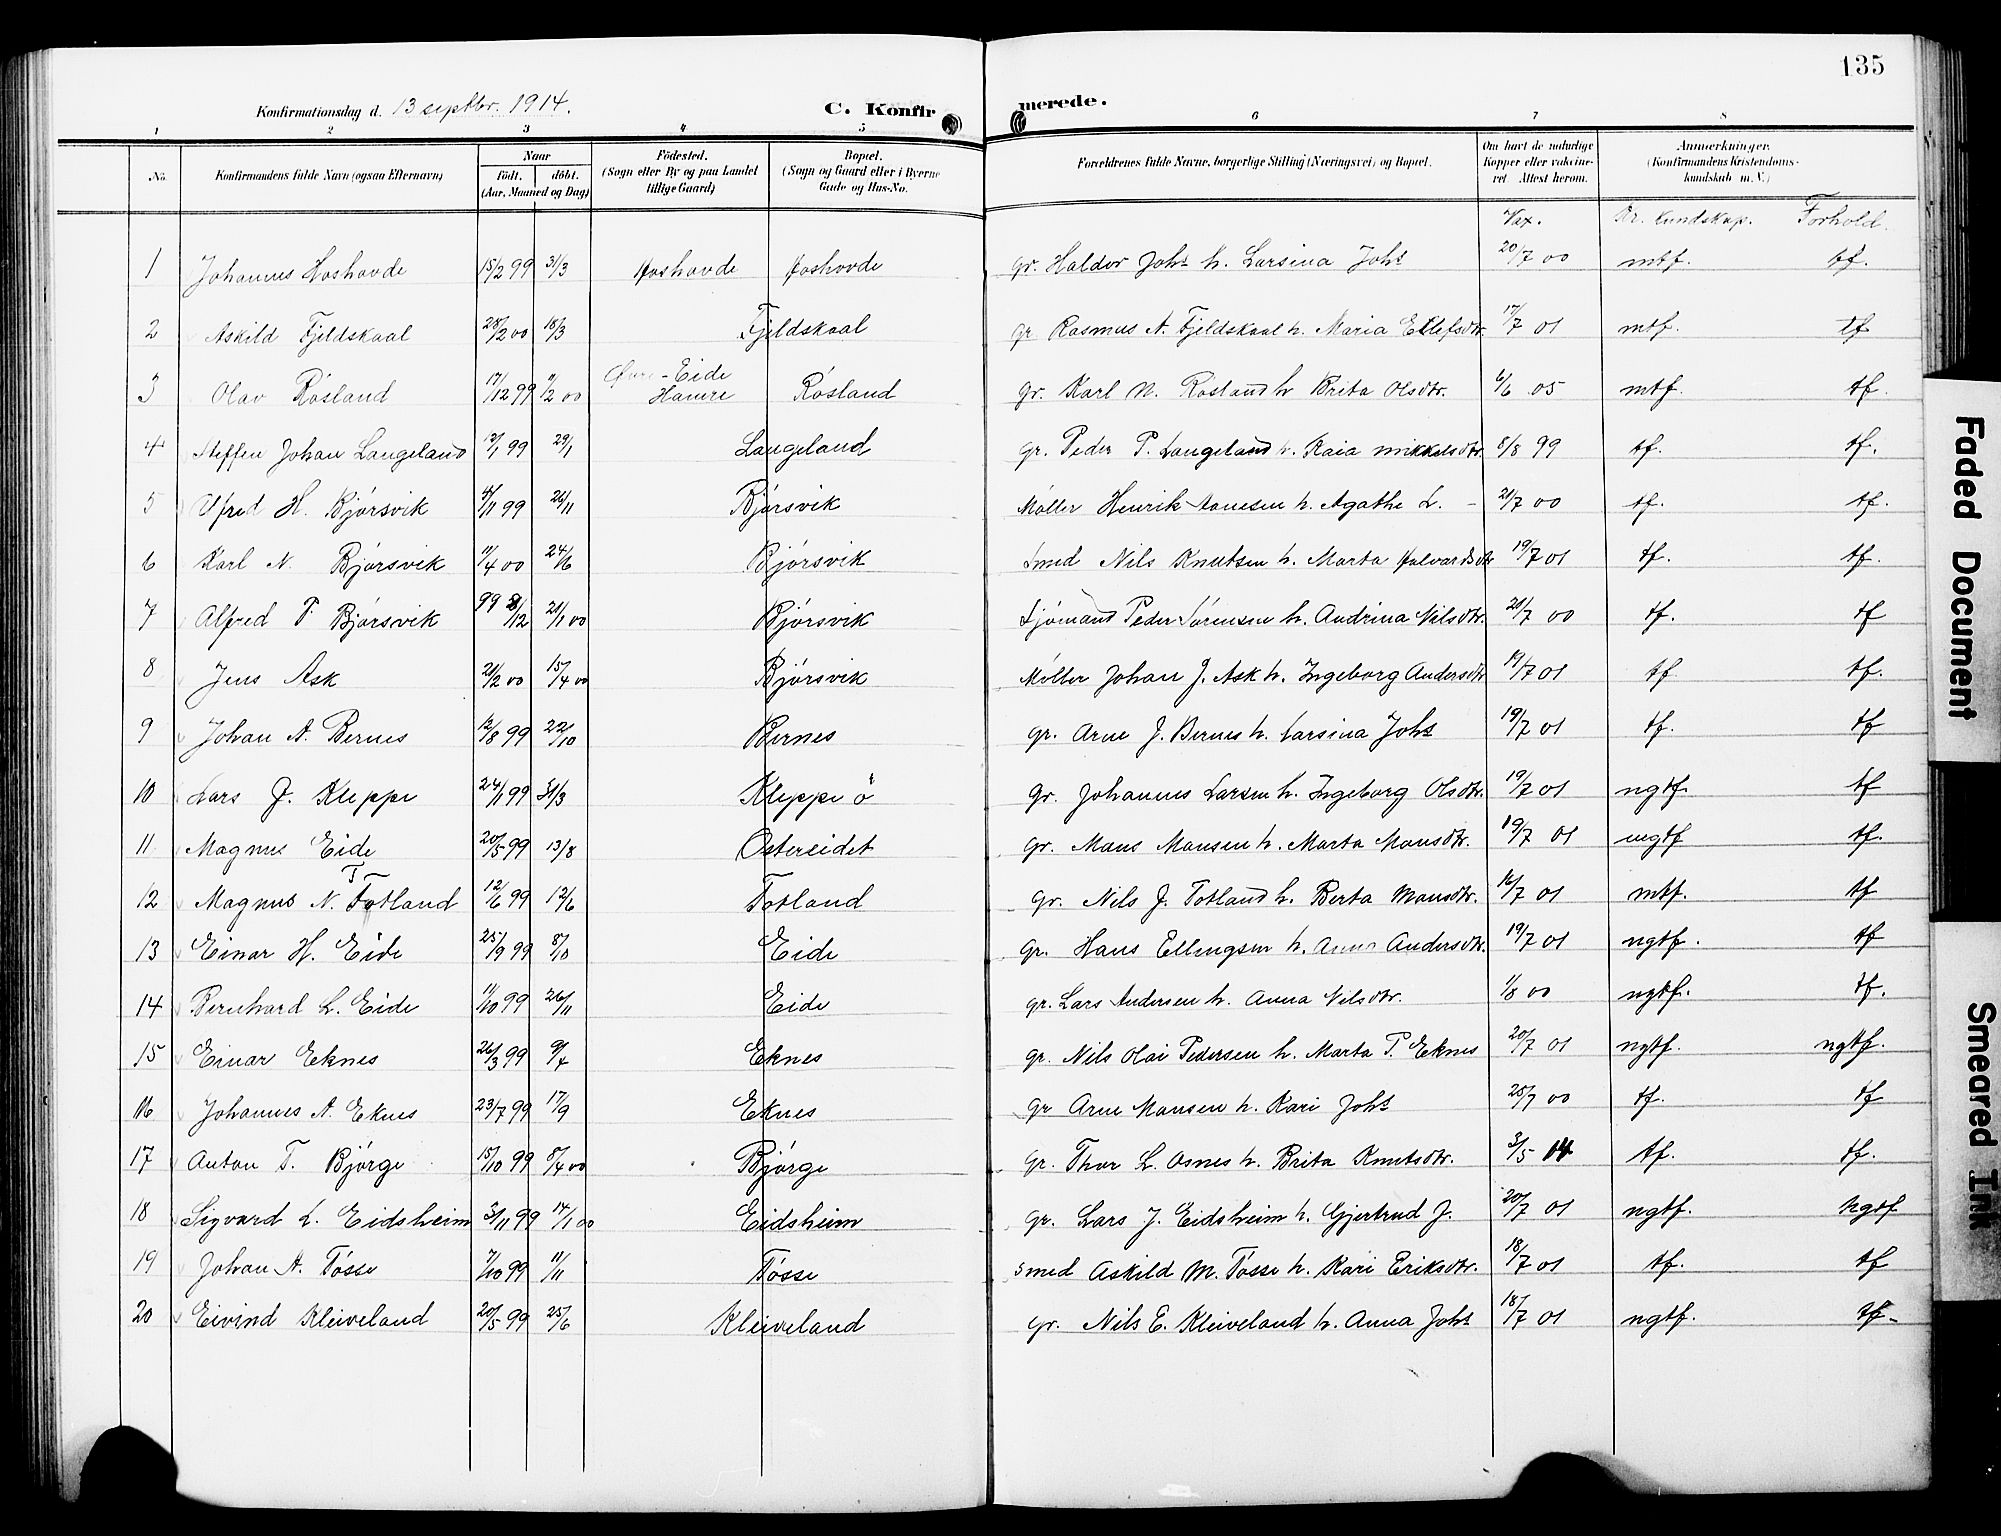 135
Konfirmationsdag d. 13 septbr. 1914. C. Konfirmerede.
1 2 3 4 5 6 7 8
No. Konfirmandens fulde Navn (ogsaa Efternavn) Naar födt. döbt. (Aar, Maaned og Dag) Födested. (Sogn eller By og paa Landet tillige Gaard) Bopæl. (Sogn og Gaard eller i Byerne Gade og Hus-No. Forældrenes fulde Navne, borgerlige Stilling (Næringsvei) og Bopæl. Om havt de naturlige Kopper eller vakcineret. Attest herom. Anmerkninger. (Konfirmandens Kristendomskundskab m. V.)
Vax. Kr. kundskap. Forhold.
1 Johannes Hoshovde 15/2 99 31/3 Hoshovde Hoshovde gr. Haldor Johs h. Larsina Johs 20/7 00 mtf. tf.
2 Askild Fjeldskaal 28/2 00 18/3 Fjeldskaal gr. Rasmus A. Fjeldskaal h. Maria Ellefsdtr. 17/7 01 mtf. tf
3 Olav Rösland 17/12 99 /2 00 -Eide Hamre Rösland gr. Karl N. Rösland h. Brita Olsdtr. 6/6 05 mtf. tf.
4 Steffen Johan Langeland 12/1 99 29/1 Langeland gr. Peder P. Langeland h. Kaia Mikkelsdtr. 8/8 99 tf. tf.
5 Alfred H. Bjørsvik 4/11 99 26/11 Bjørsvik Møller Henrik h. Agathe L. - 21/7 00 tf. tf.
6 Karl N. Bjørsvik 11/4 00 24/6 Bjørsvik Smed Nils Knutsen h. Marta Halvardsdtr 19/7 01 tf. tf.
7 Alfred P. Bjørsvik 99 /12 21/1 00 Bjørsvik Sjømand Peder Sørensen h. Andrina Nilsdtr. 21/7 00 tf. tf
8 Jens Ask 21/2 00 15/4 00 Bjørsvik Møller Johan J. Ask h. Ingeborg Andersdtr 19/7 01 tf tf.
9 Johan A. Bernes 12/8 99 22/10 Bernes gr. Arne J. Bernes h. Larsina Johs 19/7 01 tf. tf
10 Lars J. Kleppe 24/1 99 31/3 Kleppe ö gr. Johannes Larsen h. Ingeborg Olsdtr. 19/7 01 ngtf. tf
11 Magnus Eide 20/5 99 13/8 Ostereidet gr. Mans Mansen h. Marta Monsdtr. 19/7 01 megtf tf.
T
12 Magnus N. Totland 12/6 99 12/6 Totland gr. Nils J. Totland h. Berta Mansdtr. 16/7 01 mtf. tf
13 Einar H. Eide 25/9 99 8/10 Eide gr. Hans Ellingsen h. Anna Andersdtr. 19/7 01 ngtf. tf
14 Bernhard L. Eide 11/10 99 26/11 Eide gr. Lars Andersen h. Anna Nilsdtr. 1/8 00 ngtf. tf.
15 Einar Eknes 26/3 99 9/4 Eknes gr. Nils Olai Pedersen h. Marta P. Eknes 20/7 01 ngtf. ngtf.
16 Johannes A. Eknes 23/7 99 17/9 Eknes gr Arne Monsen h. Kari Johs 25/7 00 tf. tf
17 Anton T. Bjørge 15/10 99 8/4 00 Bjørge gr. Thor L. Osnes h. Brita Knutsdtr. 3/5 14 tf. tf.
18 Sigvard L. Eidsheim 3/11 99 14/1 00 Eidsheim gr. Lars J. Eidsheim h. Gjertrud J. 20/7 01 ngtf. ngtf
19 Johan A. Tösse 7/10 99 11/11 Tösse Smed Askild M. Tösse h. Kari Eriksdtr. 18/7 01 tf. tf
20 Eivind Kleiveland 20/5 99 25/6 Kleiveland gr. Nils E. Kleiveland h. Anna Johs 18/7 01 ngtf. tf-
Faded Document
Smeared Ink